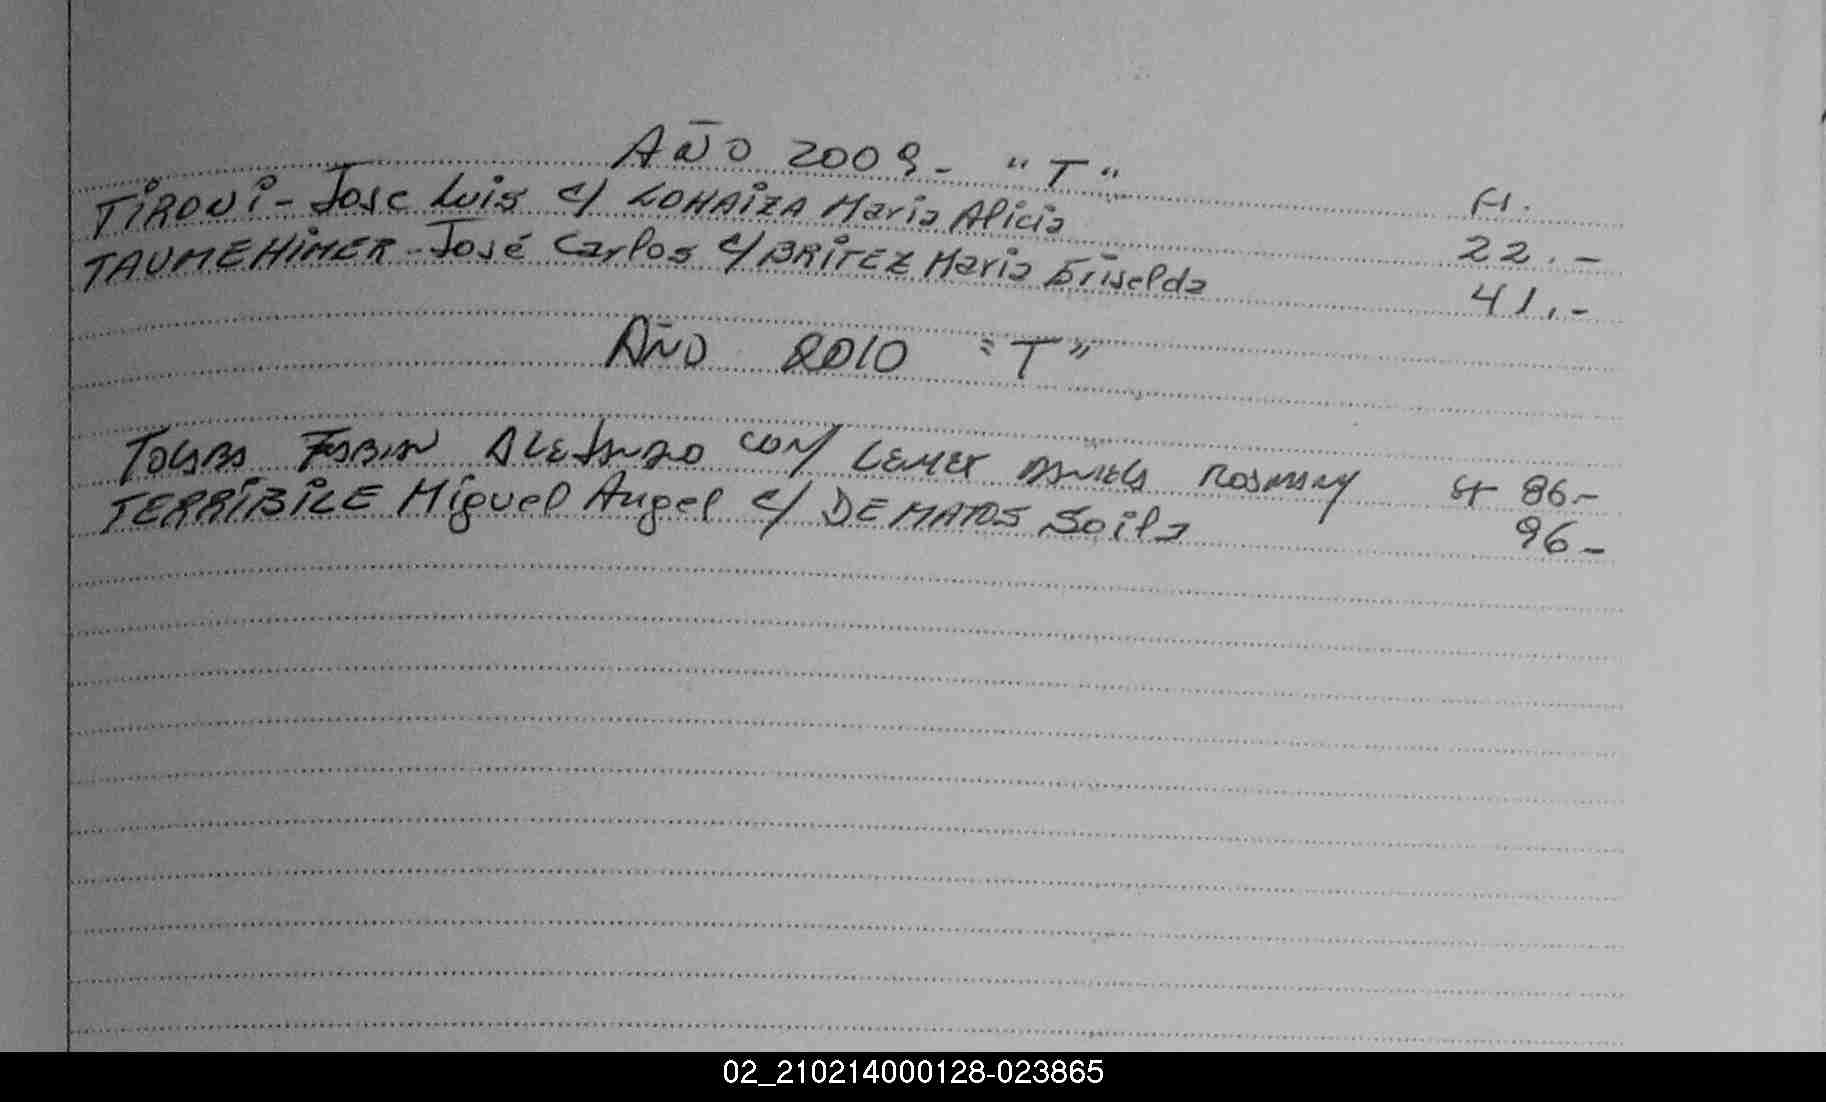 AÑO 2009_ "T"
H.
TIRONI - Jose Luis c/ LOHAIZA Maria Alicia 22.-
TAUMEHIMER - José Carlos c/ BRITEZ Maria Griselda 41.-
AÑO 2010 "T"
TOLABA FABIAN ALEJANDRO CON/ LEMEX DANIELA ROSMARY 86-
TERRIBILE Miguel Angel c/ DE MATOS Soila 96-
02_210214000128-023865